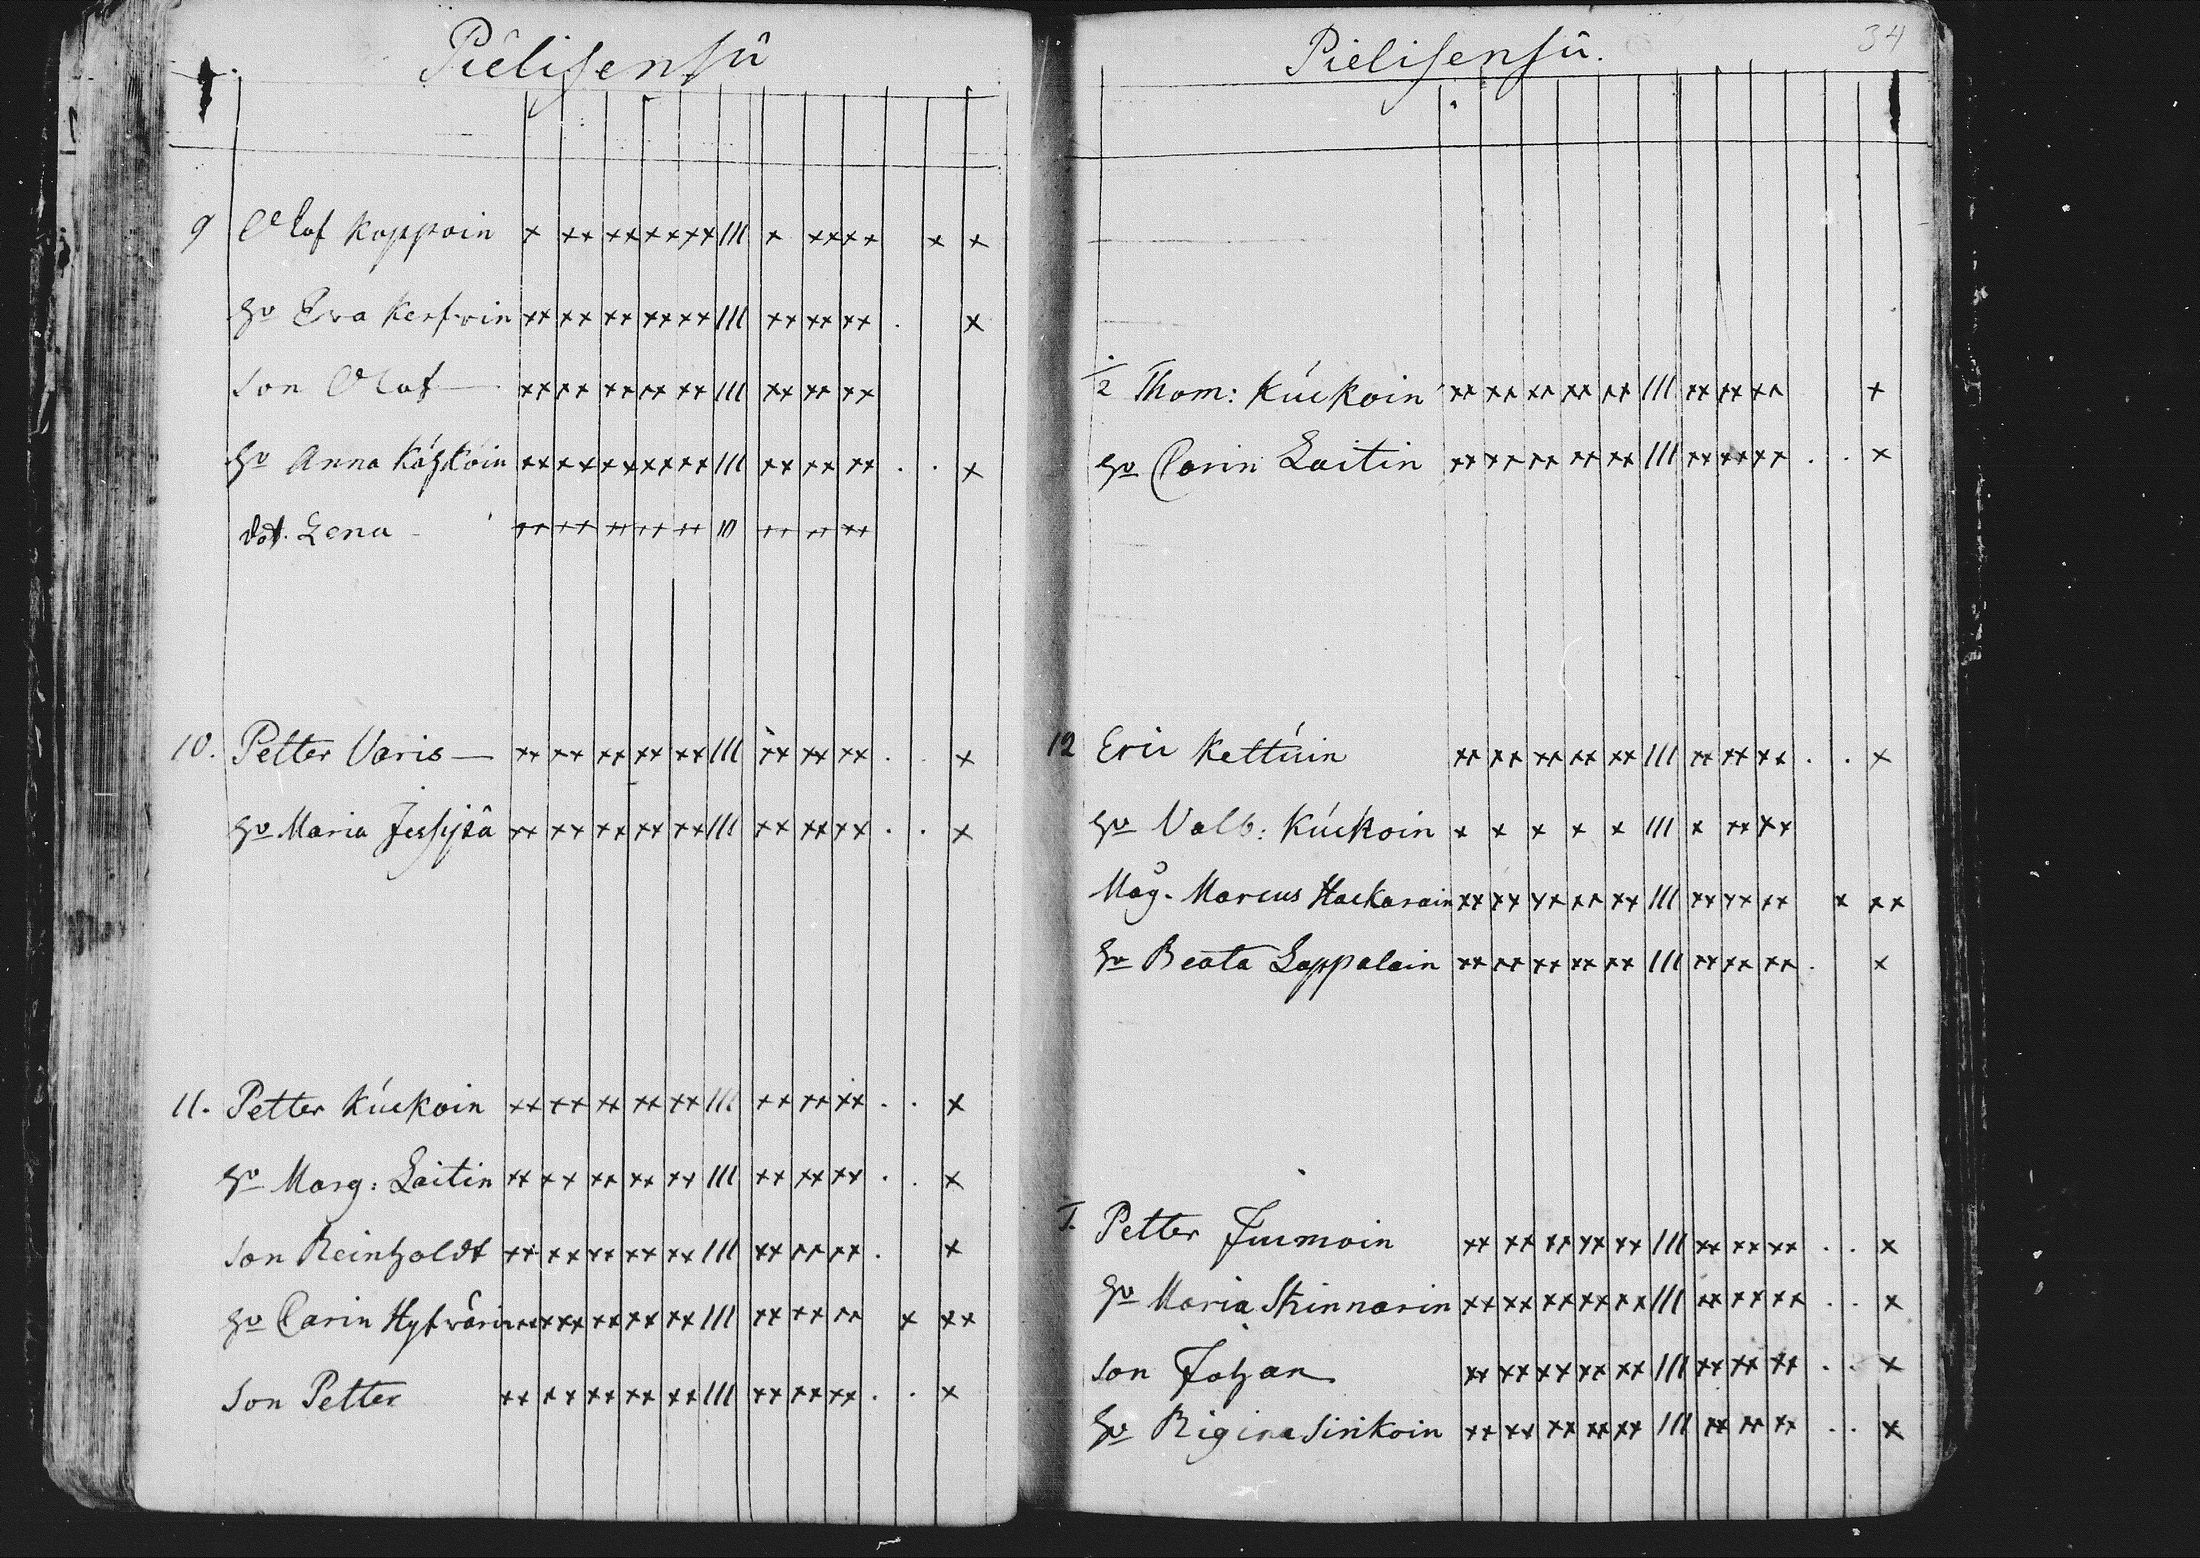 Pielisensû
9 Olof Koppoin x xx xx xx xx III x xx xx x x
hu Eva Kerfvin xx xx xx xx xx III xx xx xx . x
Son Olof — xx xx xx xx xx III xx xx xx
hu Anna xx xx xx xx xx III xx xx xx . . x
dot. Lena xx xx xx xx xx III xx xx xx
10. Petter Varis — xx xx xx xx xx III xx xx xx . . x
hu Maria xx xx xx xx xx III xx xx xx . . x
11. Petter Kúckoin xx xx xx xx xx III xx xx xx . . x
hu Marg: Laitin xx xx xx xx xx III xx xx xx . . x
Son Reinholdt xx xx xx xx xx III xx xx xx . x
hu Carin Hyfvärin xx xx xx xx xx III xx xx xx x xx
Son Petter xx xx xx xx xx III xx xx xx . . x
Pielisensû. 34
1/2 Thom: Kúckoin xx xx xx xx xx III xx xx xx x
hu Carin Laitin xx xx xx xx xx III xx xx xx . . x
12 Eric Kettúin xx xx xx xx xx III xx xx xx . . x
hu Valb: Kúckoin x x x x x III x xx xx
Måg. Marcus Hackarain xx xx xx xx xx III xx xx xx x xx
hu Beata Lappalain xx xx xx xx xx III xx xx xx . x
Petter xx xx xx xx xx III xx xx xx . . x
hu Maria Skinnarin xx xx xx xx xx III xx xx xx . . x
Son Johan xx xx xx xx xx III xx xx xx . . x
hu Rigina Sirikoin xx xx xx xx xx III xx xx xx . . x